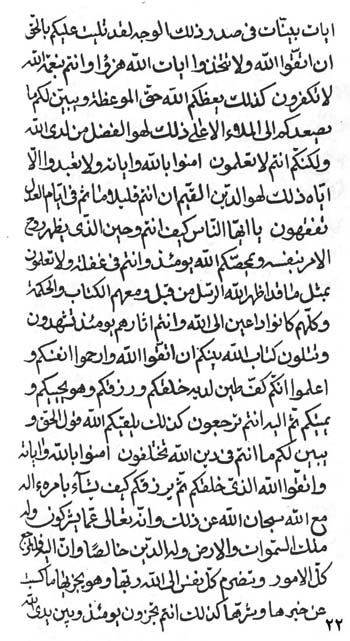 ايات بينات فى صدر ذلك الوجه لقد تليت عليكم بالحق
ان اتقوا الله ولا تتخذوا ايات الله هزوا وانتم بنعمة الله
لا تكفرون كذلك يعظكم الله حق الموعظة ويبين لكم ما
يصعدكم الى الملاء الاعلى ذلك لهو الفضل من لدى الله
ولكنكم انتم لا تعلمون امنوا بالله واياته ولا تعبدوا الا
اياه ذلك لهو الدين القيم ان انتم قليلا ما تم فى ايام العدل
تفقهون يا ايها الناس كيف انتم وحين الذى يظهر روح
الامر بنفسه ويمحصكم الله يومئذ وانتم فى غفلة ولا تعلمون
بمثل ما قد اظهر الله الرسل من قبل ومعهم الكتاب والحكمة
وكلهم كانوا داعين الى الله وانتم اثارهم يومئذ تشهدون
وتتلون كتاب الله بينكم ان اتقوا الله وارحموا انفسكم و
اعلموا انكم كف طين لديه خلقكم ورزقكم وهو يحييكم و
يميتكم ثم اليه انتم ترجعون كذلك يلقيكم الله قول الحق و
يبين لكم ما انتم فى دين الله تختلفون امنوا بالله واياته
واتقوا الله الذى خلقكم ثم يرزقكم كيف يشاء بامره ءاله
مع الله سبحان الله عن ذلك وانه تعالى عما تشركون وله
ملك السموات والارض وله الدين خالصا وان اليه
كل الامور وتضرع كل نفس الى الله ربها وهو يجزيها ما كسبت
عن خيرها وشرها كذلك انتم تجزون يومئذ وبين يدى الله
٢٢